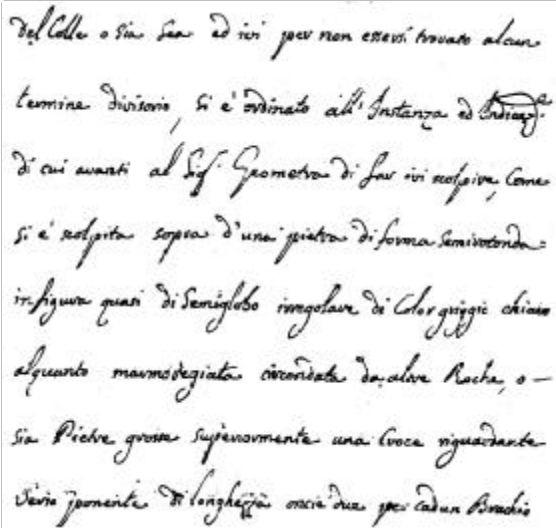 del Colle o sia Sea ed ivi per non essersi trovato alcun
termine divisorio, si è ordinato all'Instanza ed
di cui avanti al Sig.r Geometra di far ivi scolpire, Come
si è scolpita sopra d'una pietra di forma semirotonda
in figura quasi di semiglobo irregolare di Color griggio chiaro
alquanto marmoregiata circondata da altre Roche, o
sia Pietre grosse superiormente una Croce riguardante
verso ponente di longhezza oncie due per cadun Brachio